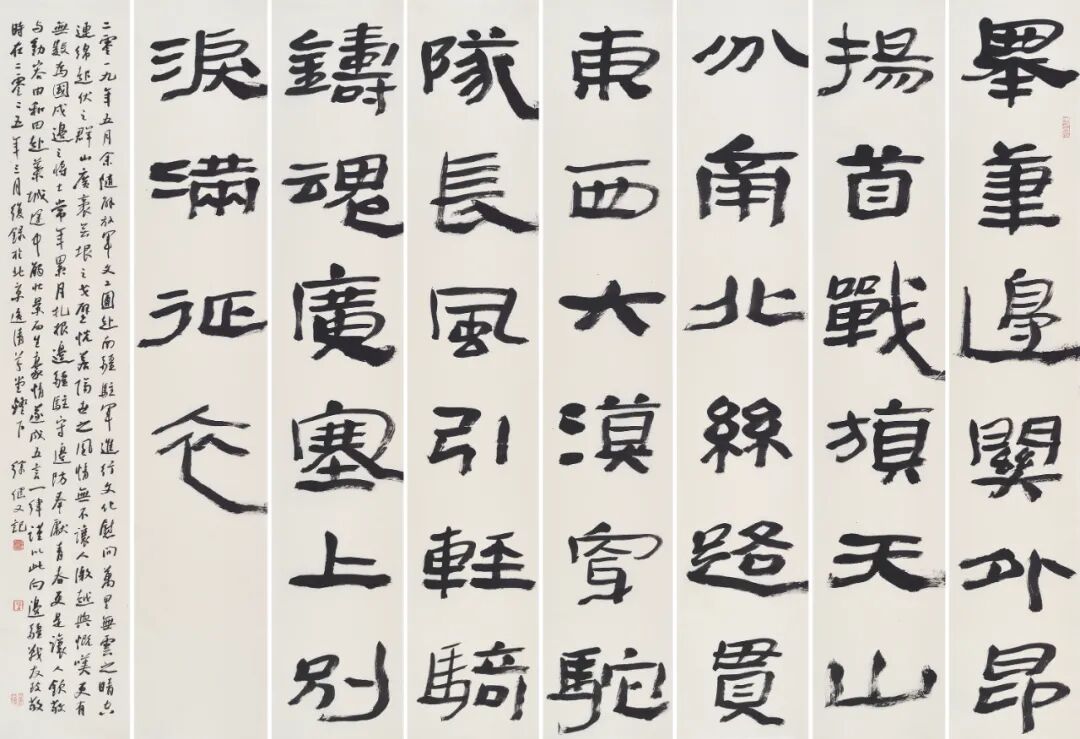 舉筆邊關外昂
揚首戰旗天山
分南北絲路貫
東西大漠穿駝
隊長風引輕騎
鑄魂廣塞上別
淚滿征衣
二零一九年五月余隨解放軍文工團赴南疆駐軍進行文化慰問萬里無雲之晴空
連綿起伏之群山廣袤無垠之戈壁恍若隔世之風情無不讓人激越與慨嘆更有
無數為國戍邊之將士常年累月扎根邊疆駐守邊防奉獻青春更是讓人欽敬
与動容由和田赴葉城途中觸此景而生豪情遂成五言一律謹以此向邊疆戰友致敬
時在二零二五年三月後錄於北京清草堂燈下 徐又記